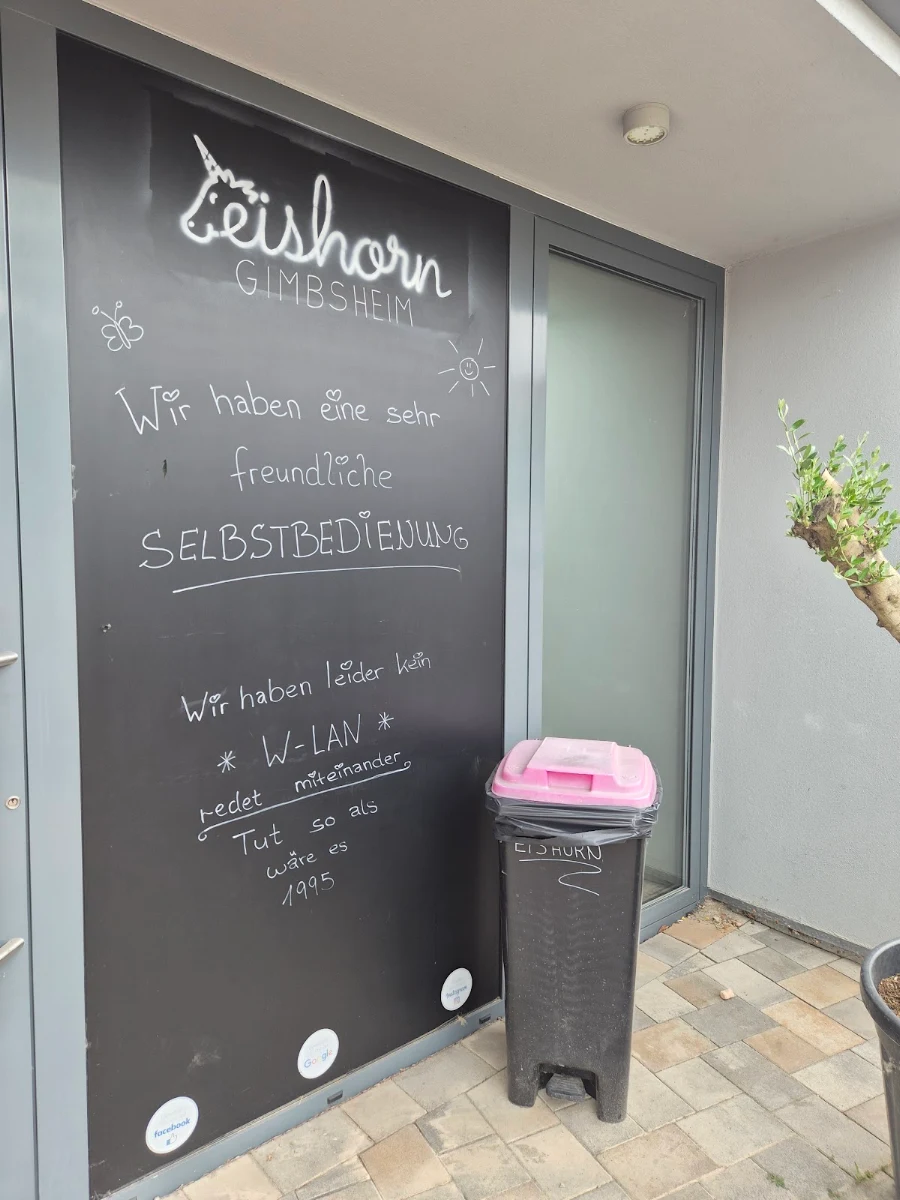 eishorn
GIMBSHEIM
Wir haben eine sehr
freundliche
SELBSTBEDiENUNG
Wir haben leider kein
* W-LAN *
redet miteinander
Tut so als
wäre es
1995
EISHORN
Instagram
Google
facebook